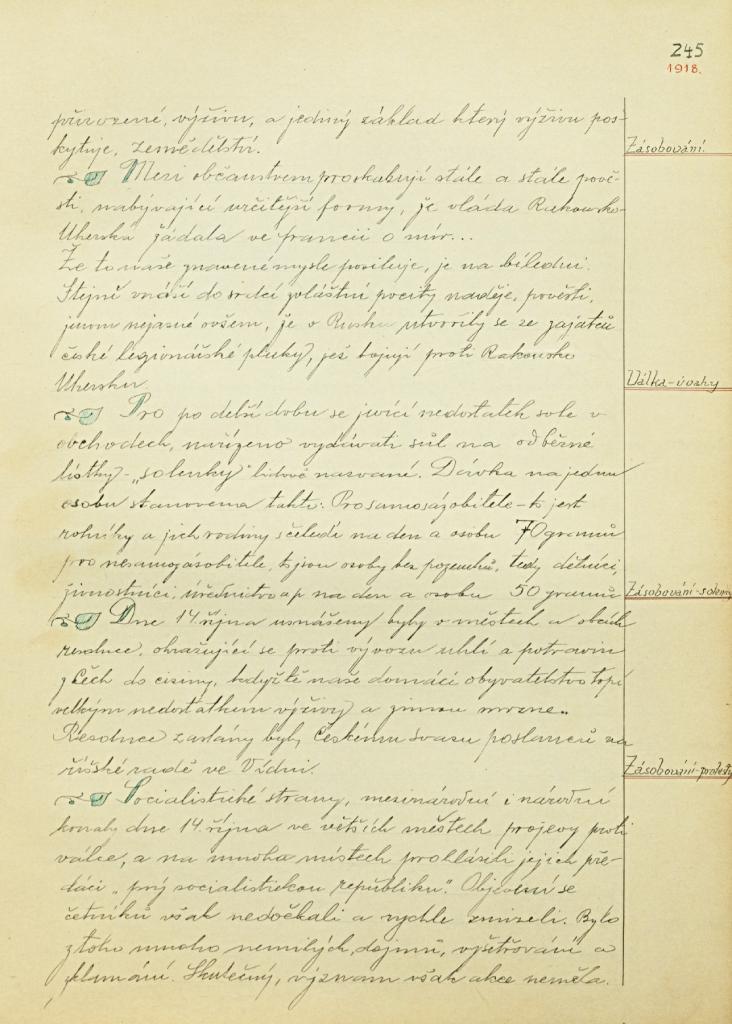 245
1918.
přirozené, výživu, a jediný základ který výživu pos-
kytuje, zemědělství.
Zásobování.
Mezi občanstvem proskakují stále a stále pově-
sti, nabývající určitější formy, že vláda Rakousko-
Uherska žádala ve francii o mír...
Že to naše znavené mysle posiluje, je na bíledni.
Stejně vnáší do srdcí zvláštní pocity naděje, pověsti,
jenom nejasné ovšem, že v Rusku utvořily se ze zajatců
české legionářské pluky, jež bojují proti Rakousku
Uhersku.
Válka-úvahy
Pro po delší dobu se jevící nedostatek sole v
obchodech, nařízeno vydávati sůl na odběrné
lístky - "solenky" lidově nazvané. Dávka na jednu
osobu stanovena takto: Pro samozásobitele - to jest
rolníky a jich rodiny s čeledí na den a osobu 70 gramů
pro nesamozásobitele, to jsou osoby bez pozemků, tedy dělníci,
živnostníci, úřednictvo ap na den a osobu 50 gramů
Zásobování-solenky
Dne 14. října usnášeny byly v městech a obcích
resoluce, ohrazující se proti vývozu uhlí a potravin
z Čech do ciziny, kdyžtě naše domácí obyvatelstvo trpí
velkým nedostatkem výživy a zimou mrzne.
Resoluce zaslány byly Českému svazu poslanců na
říšské radě ve Vídni.
Zásobování-protesty
Socialistické strany, mezinárodní i národní
konaly dne 14. října ve větších městech projevy proti
válce, a na mnoha místech prohlásili jejich pře-
dáci "prý socialistickou republiku". Objevení se
četníků však nedočkali a rychle zmizeli. Bylo
z toho mnoho nemilých dojmů, vyšetřování a
. Skutečný, význam však akce neměla.